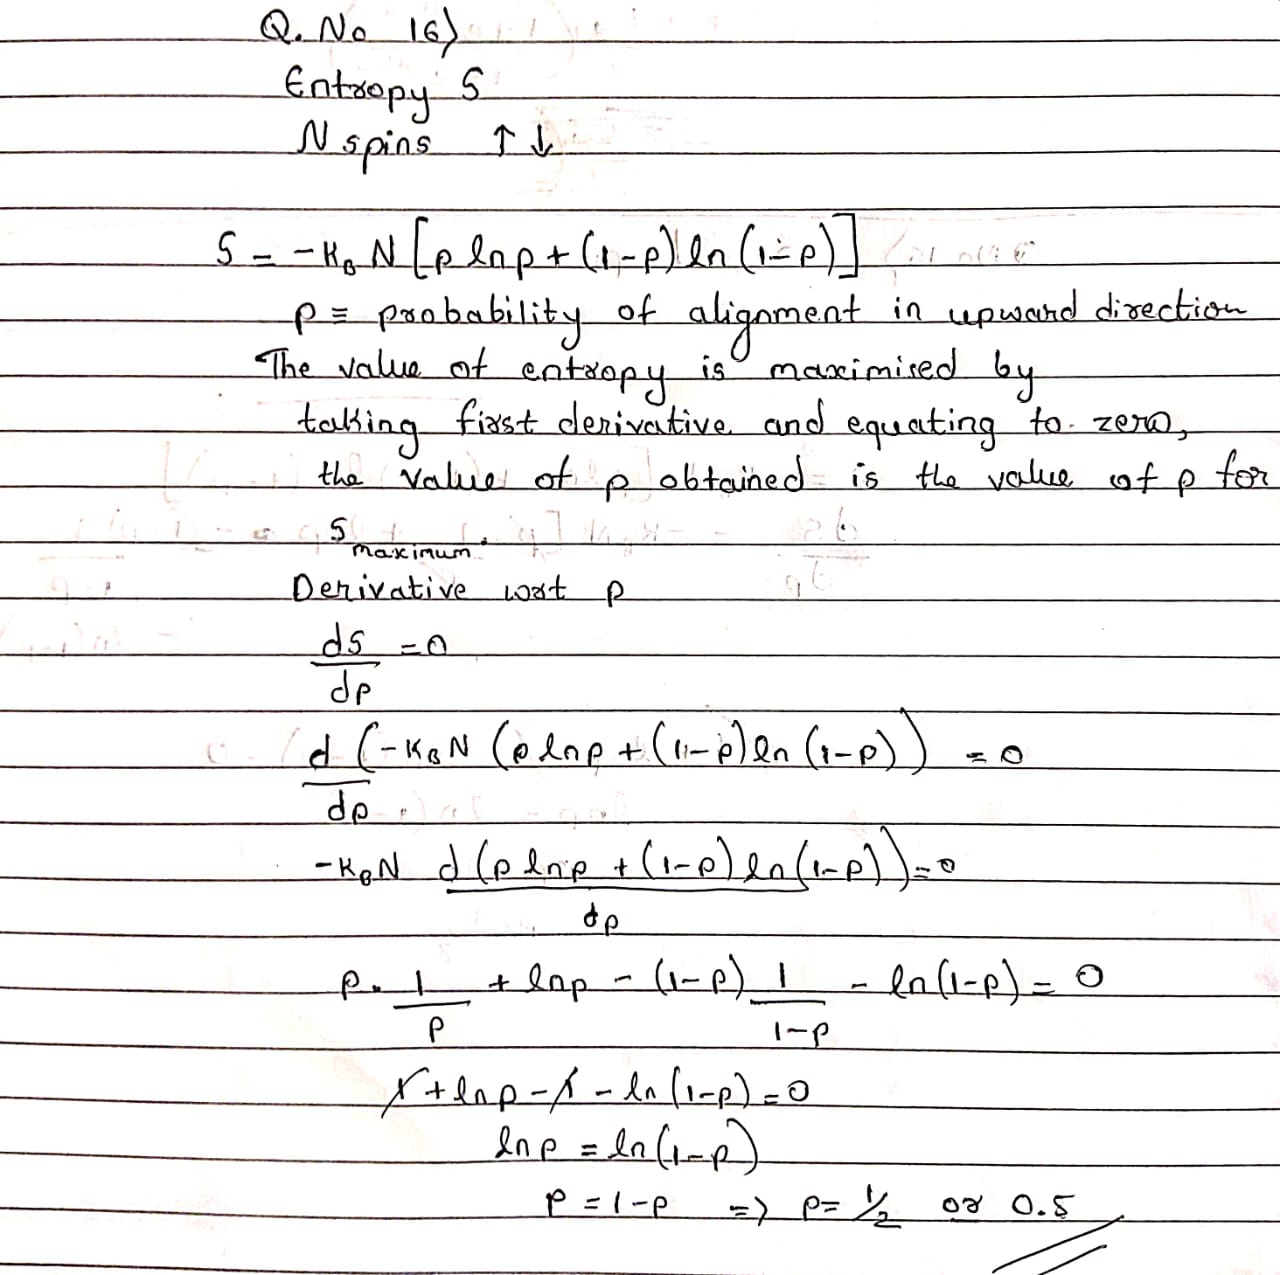 Q. No 16)
Entropy S
N spins ↑ ↓
S = -K_B N [p ln p + (1-p) ln (1-p)]
p ≡ probability of alignment in upward direction
The value of entropy is maximised by
taking first derivative and equating to zero,
the value of p obtained is the value of p for
S maximum.
Derivative wrt p
dS/dp = 0
d/dp (-K_B N (p ln p + (1-p) ln (1-p)) = 0
-K_B N d(p ln p + (1-p) ln (1-p))/dp = 0
p. 1/p + ln p - (1-p) 1/1-p - ln (1-p) = 0
1 + ln p - 1 - ln (1-p) = 0
ln p = ln (1-p)
p = 1-p => p = 1/2 or 0.5